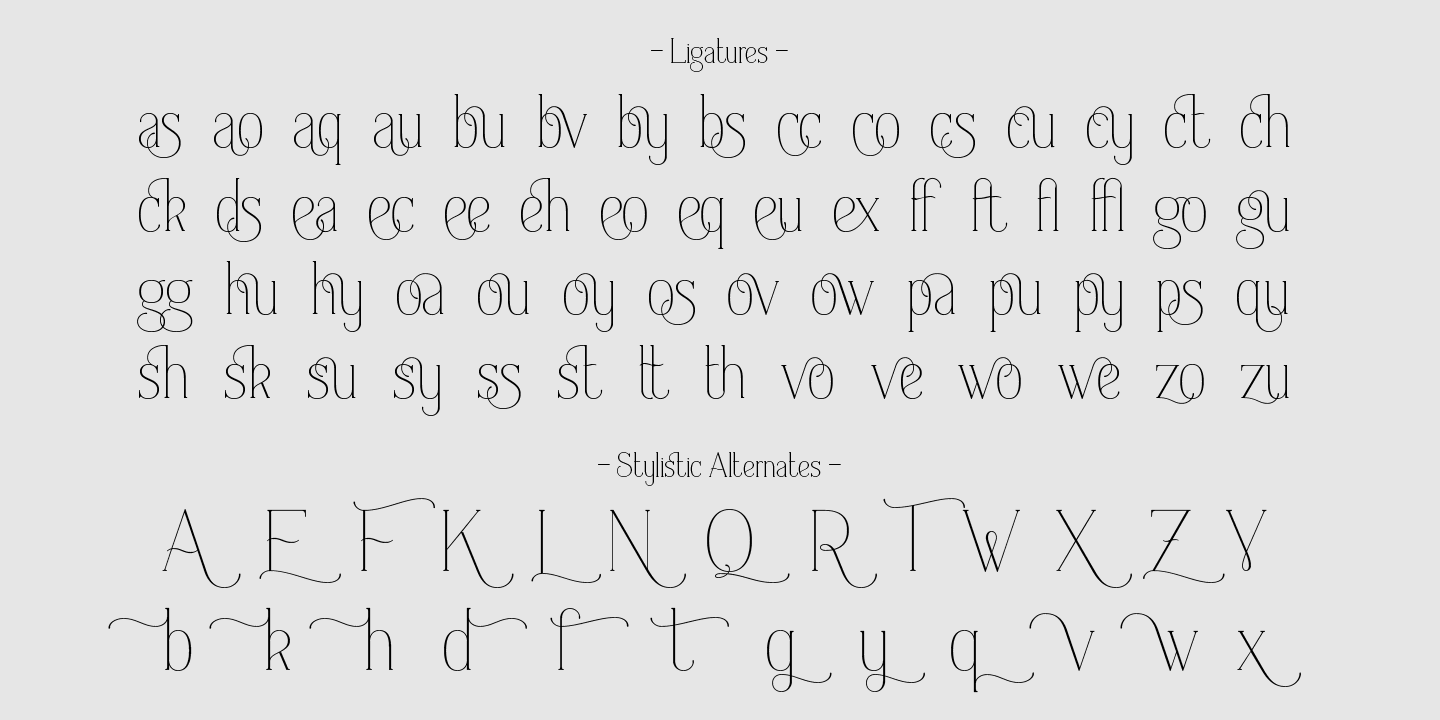 - Ligatures -
as ao aq au bu bv by bs cc co cs cu cy ct ch
ck ds ea ec ee eh eo eq eu ex ff ft fl ffl go gu
gg hu hy oa ou oy os ov ow pa pu py ps qu
sh sk su sy ss st tt th vo ve wo we zo zu
- Stylistic Alternates -
A E F K L N Q R T W X Z Y
b k h d f t g y q v w x